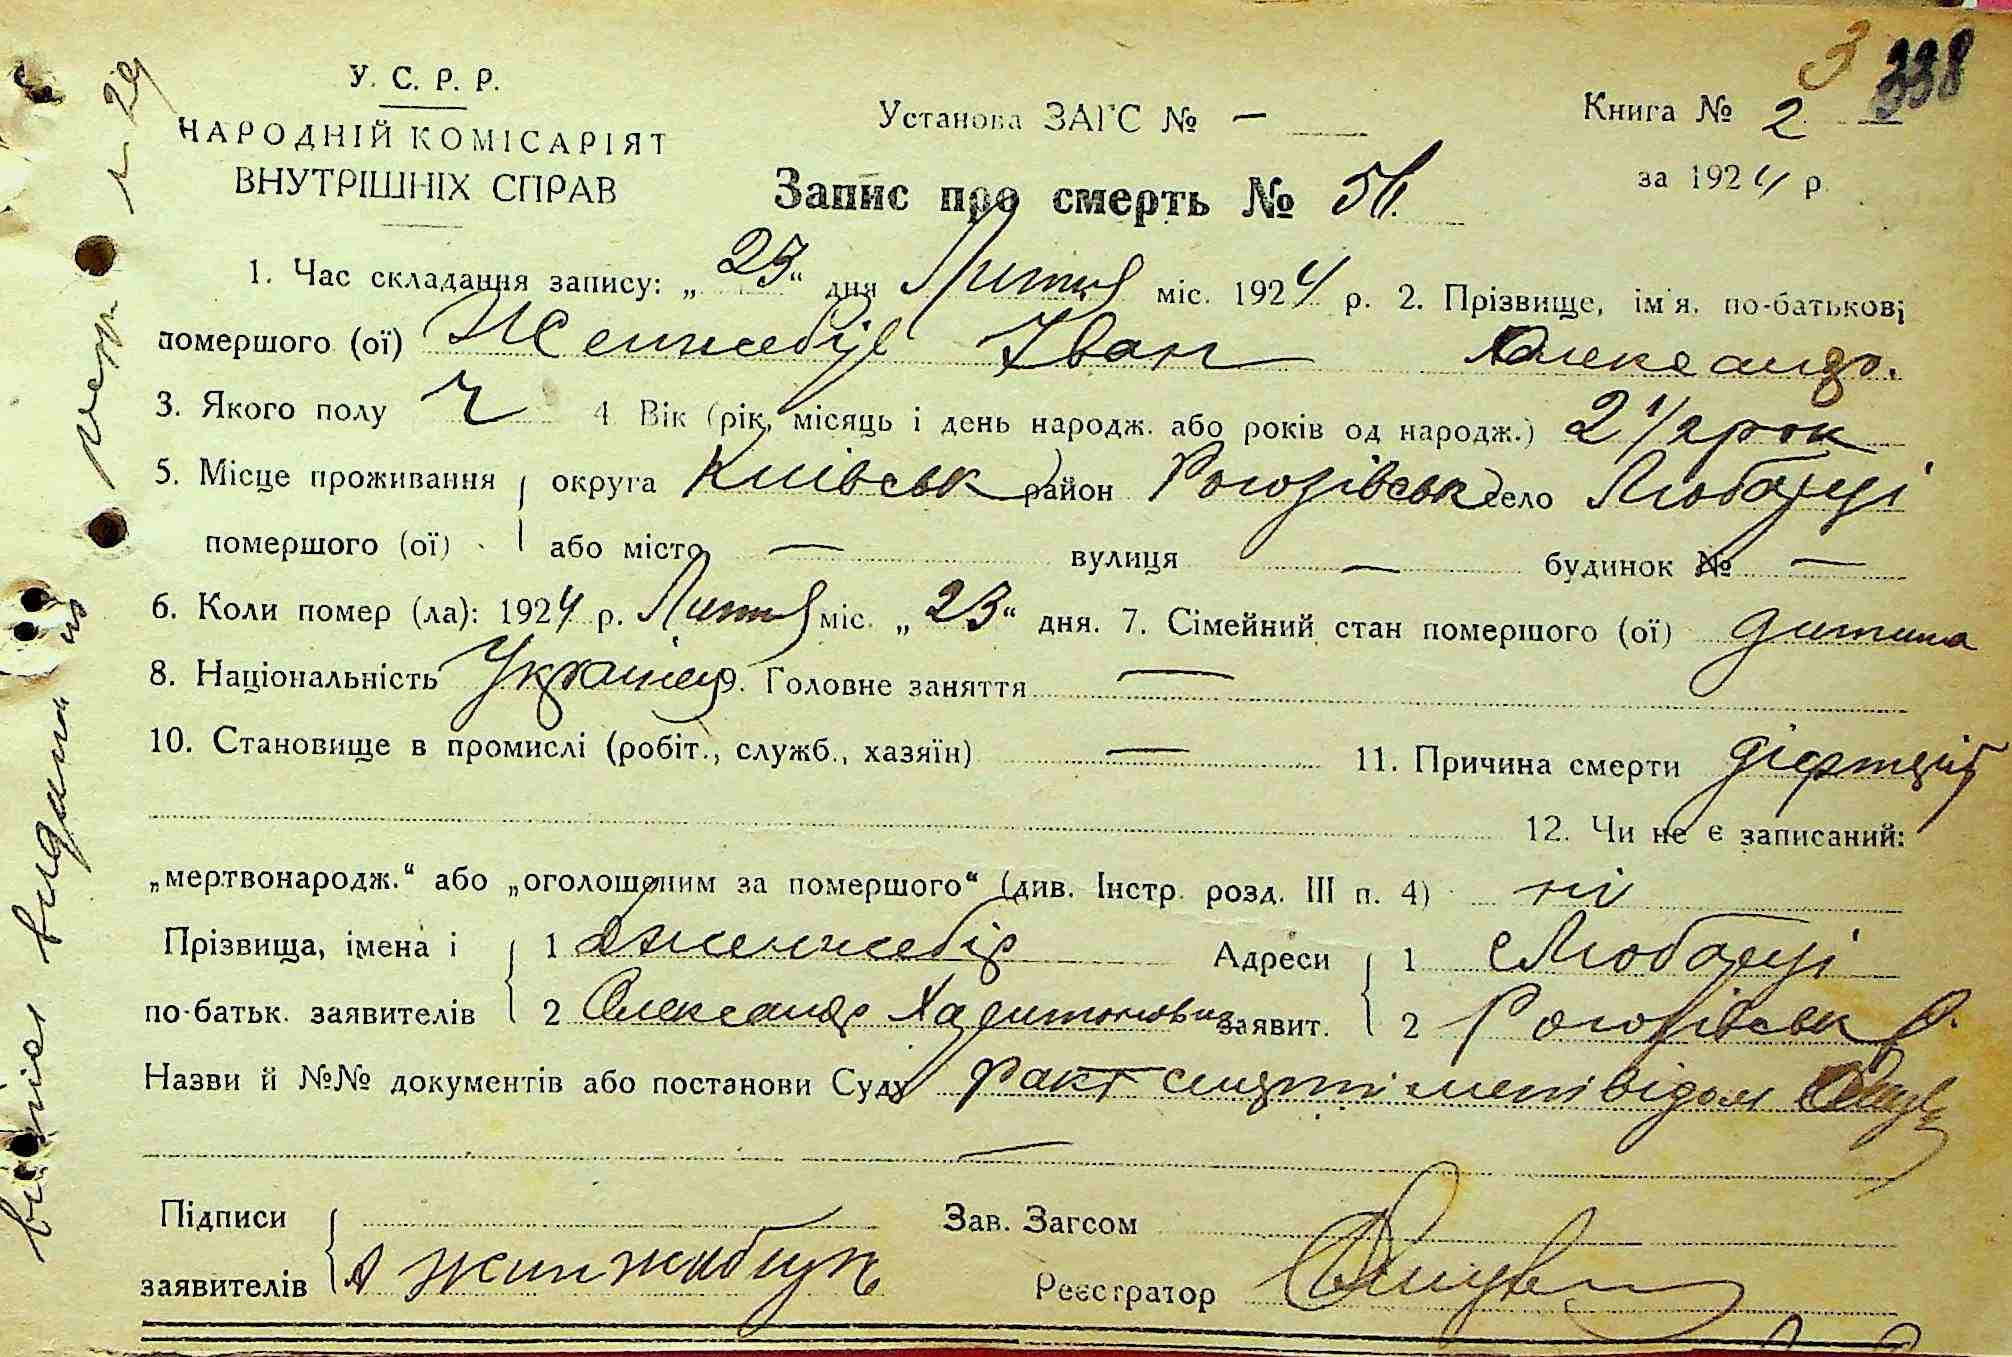 3 338
У. С. Р. Р.
НАРОДНІЙ КОМІСАРІЯТ
ВНУТРІШНІХ СПРАВ
Установа ЗАГС № —
Книга № 2
за 1924 р.
Запис про смерть №
1. Час складання запису: „23“ дня Лютня міс. 1924 р. 2. Прізвище, ім'я, по-батькові
помершого (ої) Женжебір Іван Олександр.
3. Якого полу ч 4 Вік (рік, місяць і день народж. або років од народж.) 2 1/2 рок
5. Місце проживання округа Київськ район Рогозівськ село Любарці
помершого (ої) або місто — вулиця — будинок № —
6. Коли помер (ла): 1924 р. Лютня міс. „23“ дня. 7. Сімейний стан помершого (ої) дитина
8. Національність Українец 9. Головне заняття —
10. Становище в промислі (робіт., служб., хазяїн) — 11. Причина смерти
12. Чи не є записаний:
„мертвонародж.“ або „оголошеним за помершого“ (див. Інстр. розд. III п. 4) ні
Прізвища, імена і 1 Дженжебір Адреси 1 с Любарці
по-батьк. заявителів 2 Олександр Харитонович заявит. 2 Рогозівськ р.
Назви й №№ документів або постанови Суду факт смерті мені відом
—
Підписи Зав. Загсом
заявителів Реєстратор